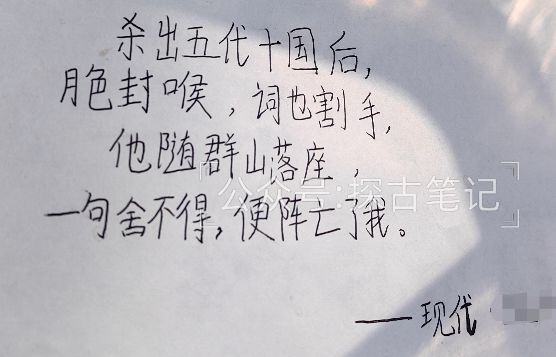 杀出五代十国后，
脃封喉，词也割手，
他随群山落座，
公众号：探古笔记
一句舍不得，便阵亡了我。
——现代·